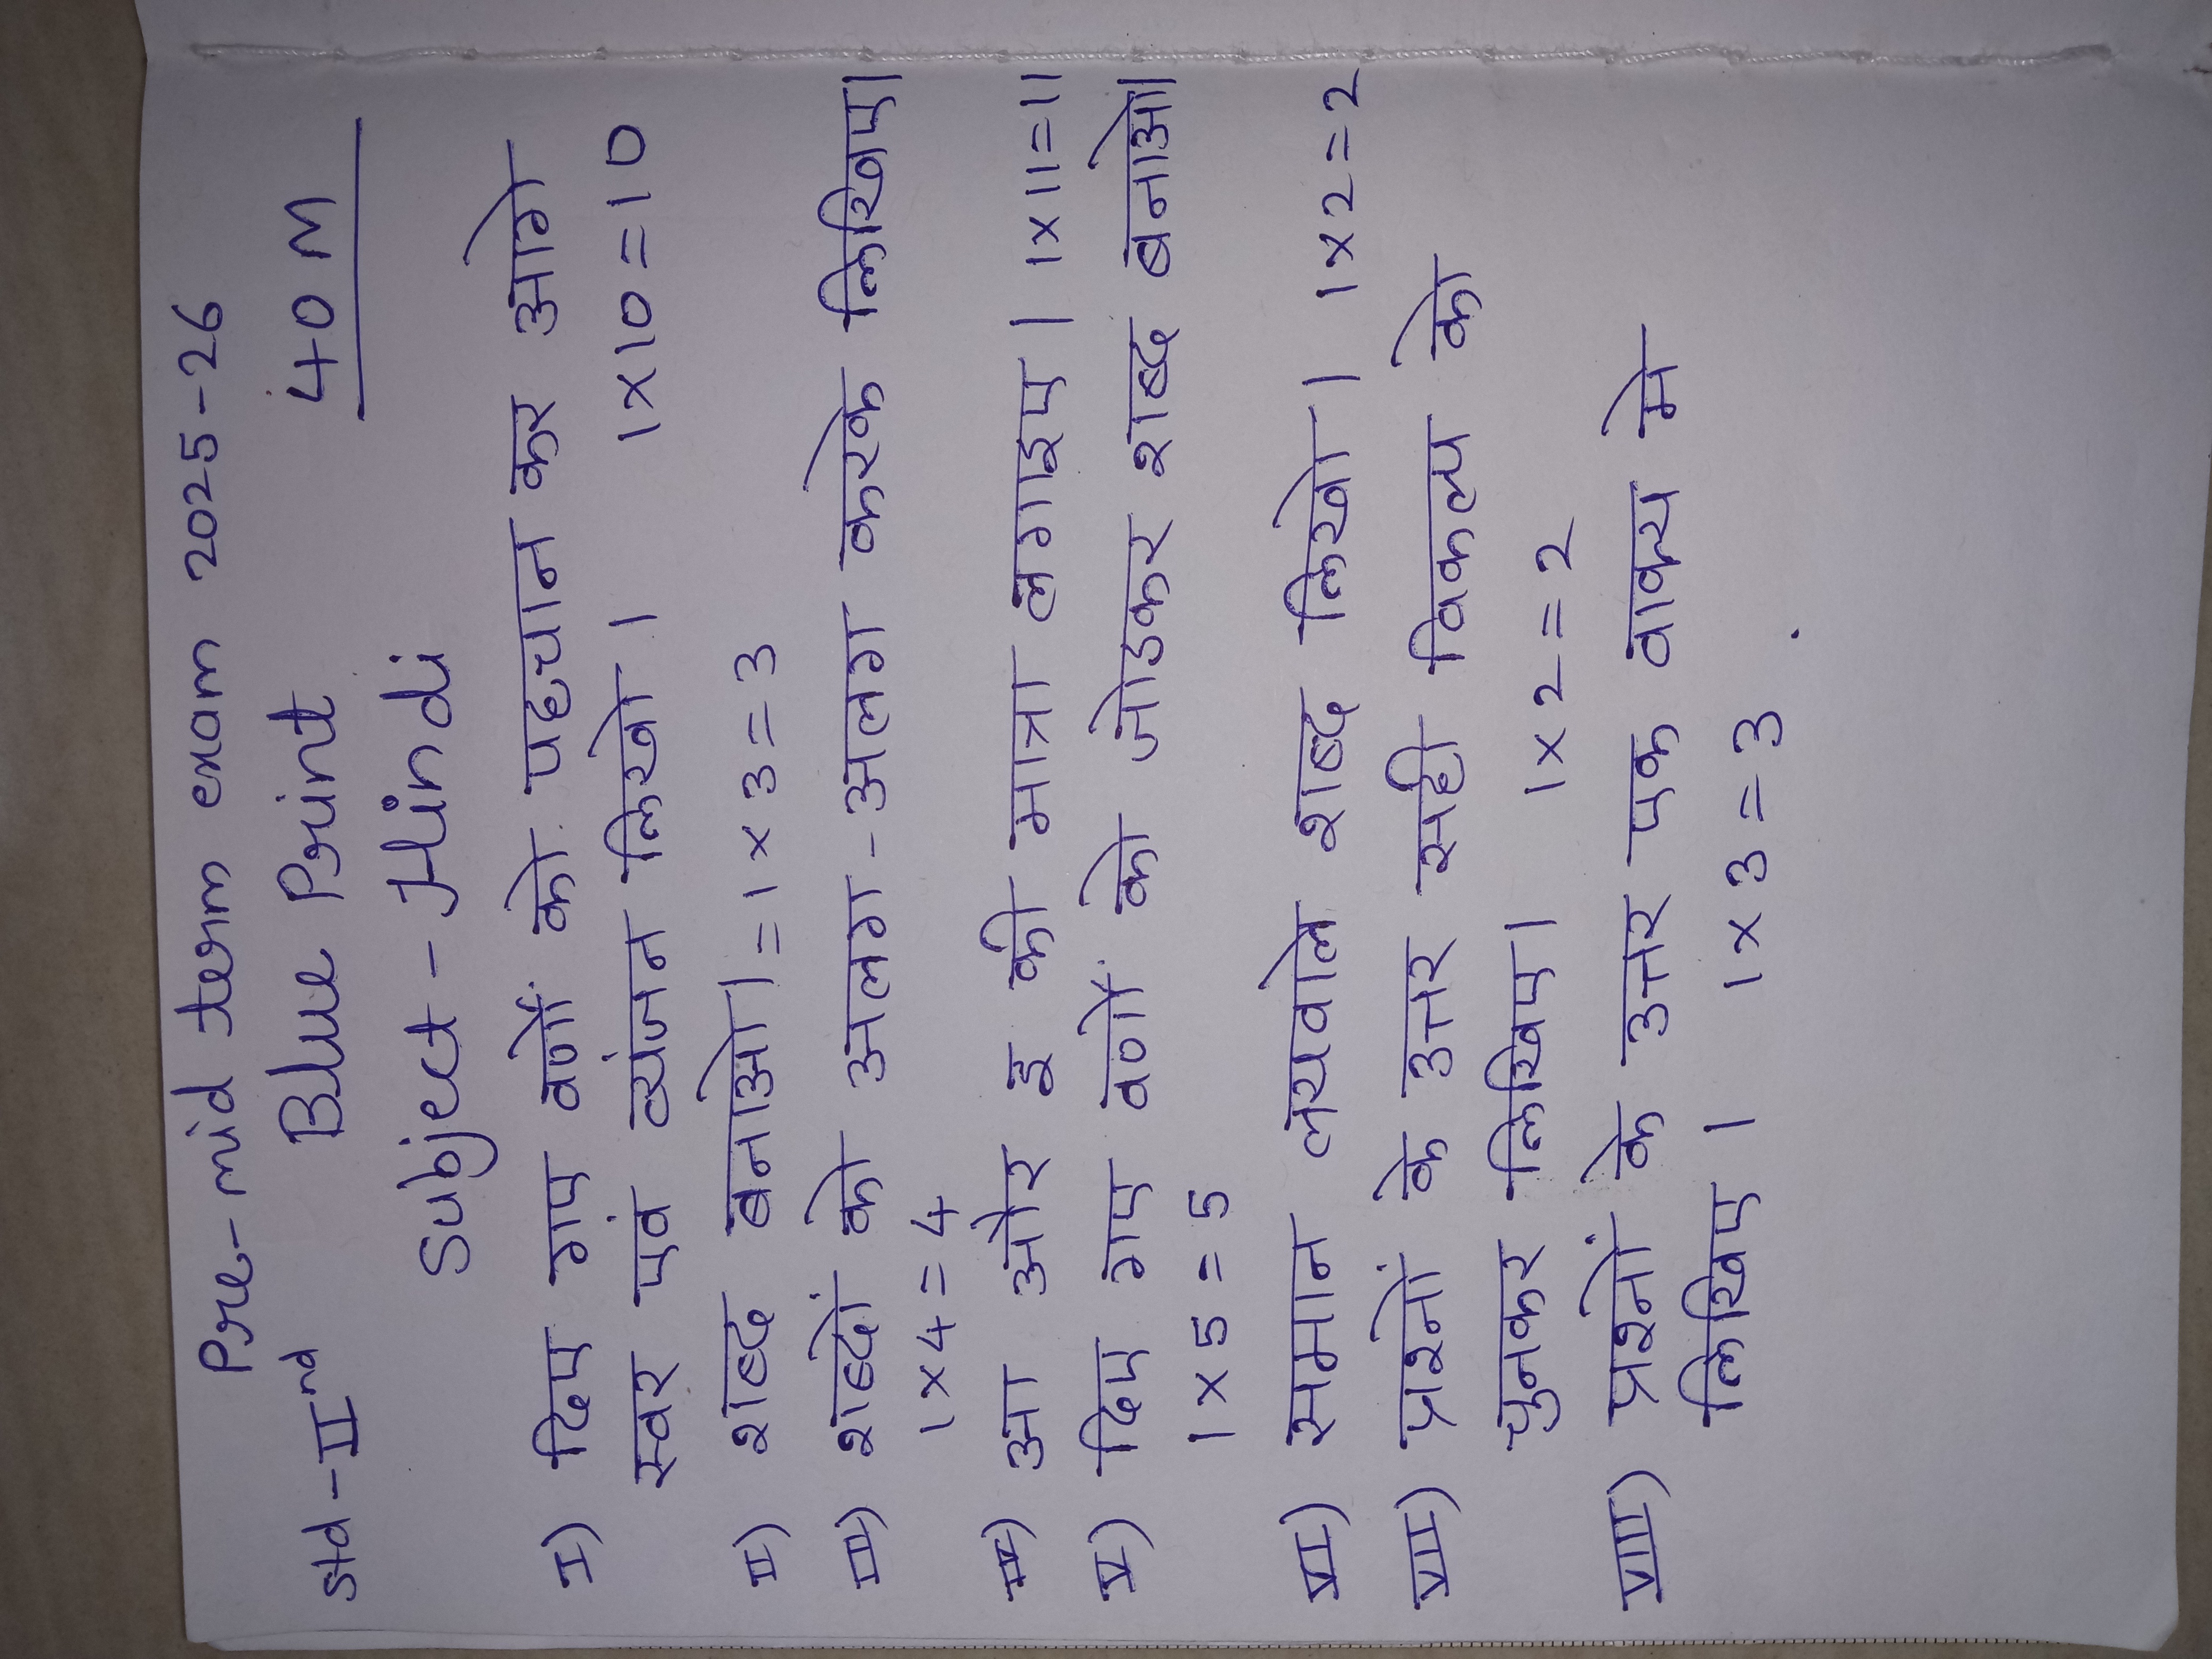 Pre-mid term exam 2025-26
Std-IInd Blue Print 40 M
Subject - Hindi
I) दिए गए वर्णों को पहचान कर आगे
स्वर एवं व्यंजन लिखो । 1x10=10
II) शब्द बनाओ। = 1 x 3 = 3
III) शब्दों को अलग-अलग करके लिखिए।
1x4=4
IV) आ और इ की मात्रा लगाइए। 1x11=11
V) दिए गए वर्णों को जोडकर शब्द बनाओ।
1 x 5 = 5
VI) समान लयवाले शब्द लिखो। 1x2=2
VII) प्रश्नों के उत्तर सही विकल्प को
चुनकर लिखिए। 1x2=2
VIII) प्रश्नों के उत्तर एक वाक्य मे
लिखिए । 1x3=3